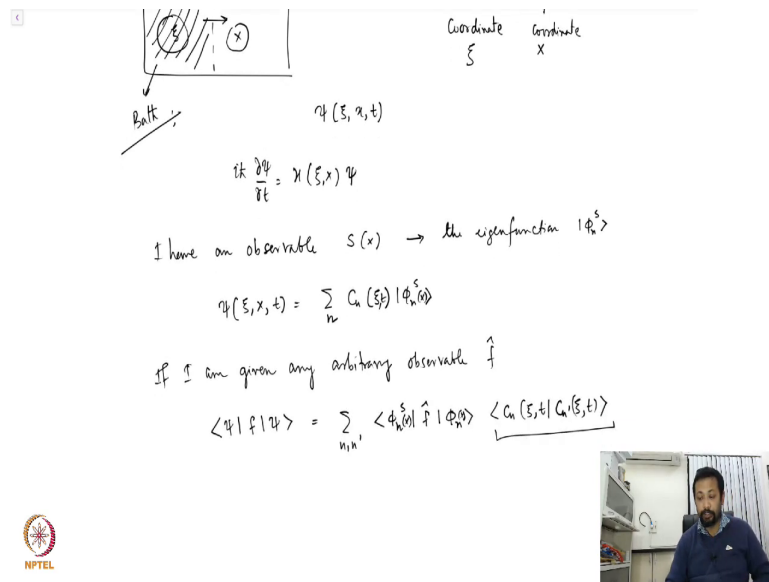 Coordinate coordinate
ξ x
ξ x
Bath
ψ(ξ,x,t)
iℏ ∂ψ/∂t = H(ξ,x) ψ
I have an observable S(x) → the eigenfunction |ϕₙˢ>
ψ(ξ,x,t) = Σₙ Cₙ(ξ,t) |ϕₙˢ(x)>
If I am given any arbitrary observable f̂
<ψ|f|ψ> = Σₙ,ₙ' <ϕₙˢ(x)| f̂ |ϕₙ(x)> <Cₙ(ξ,t| Cₙ'(ξ,t)>
NPTEL